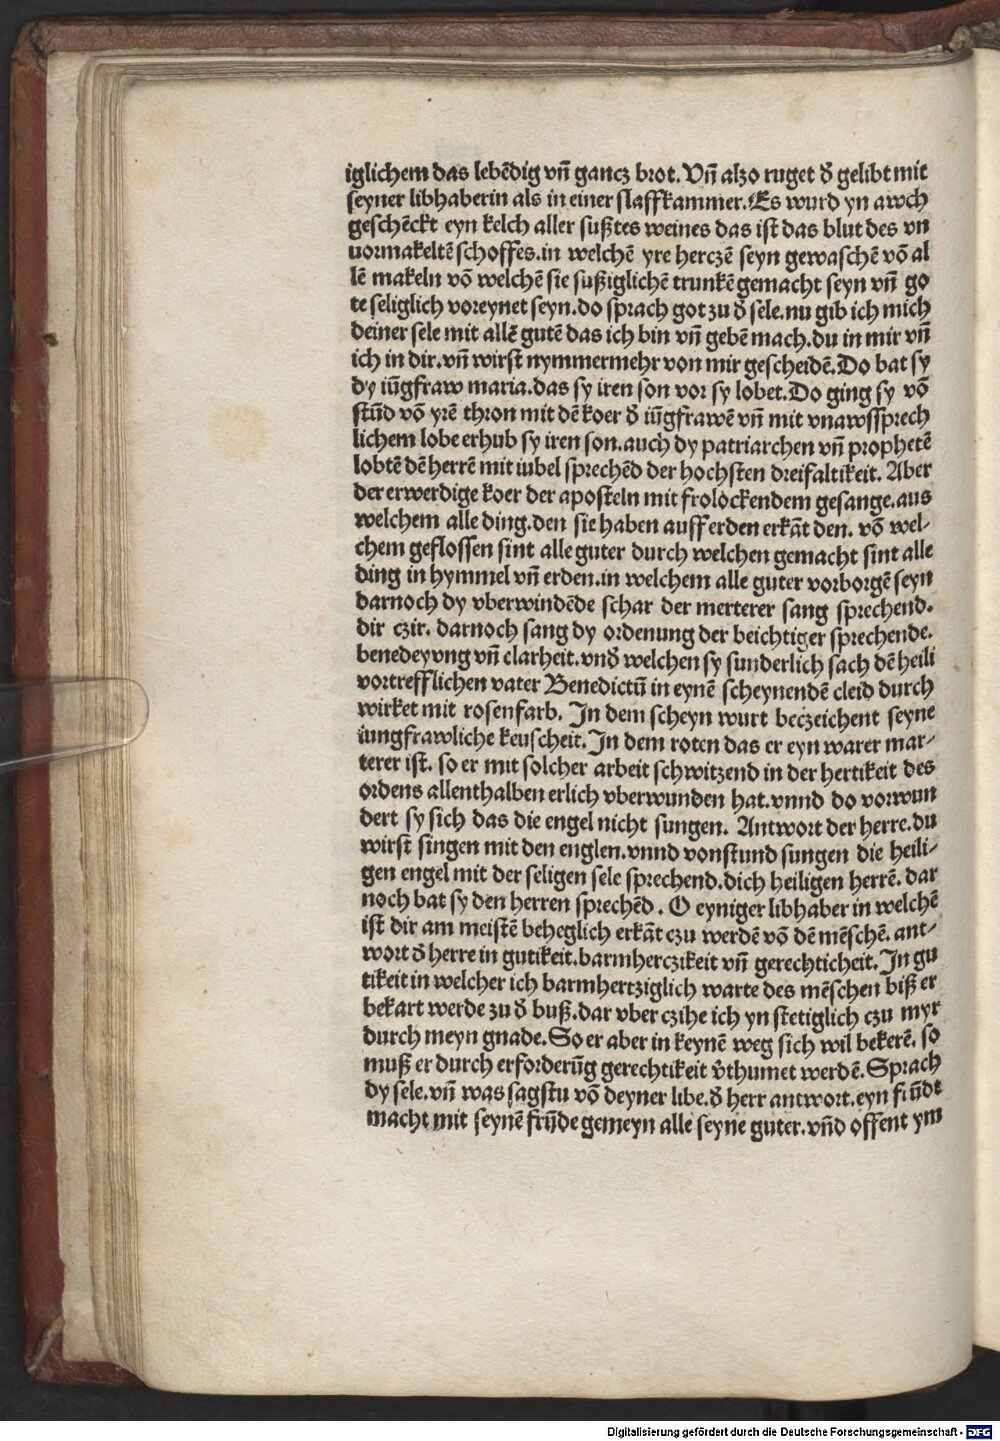 iglichem das lebẽdig vñ gancz brot. Vñ alzo ruget d̕ gelibt mit
seyner libhaberin als in einer slaffkammer. Es wurd yn awch
geschẽckt eyn kelch aller sußtes weines das ist das blut des vn
uormakeltẽ schoffes. in welchẽ yre herczẽ seyn gewaschẽ võ al
lẽ makeln võ welchẽ sie sußiglichẽ trunkẽ gemacht seyn vñ go
te seliglich voreynet seyn. do sprach got zu d̕ sele. nu gib ich mich
deiner sele mit allẽ gutẽ das ich bin vñ gebẽ mach. du in mir vñ
ich in dir. vñ wirst nymmermehr von mir gescheidẽ. Do bat sy
dy iũgfraw maria. das sy iren son vor sy lobet. Do ging sy võ
stũd võ yrẽ thron mit dẽ koer d̕ iũgfrawẽ vñ mit vnawssprech
lichem lobe erhub sy iren son. auch dy patriarchen vñ prophetẽ
lobtẽ dẽ herrẽ mit iubel sprechẽd der hochsten dreifaltikeit. Aber
der erwerdige koer der aposteln mit frolockendem gesange. aus
welchem alle ding. den sie haben auff erden erkãt den. võ wel⸗
chem geflossen sint alle guter durch welchen gemacht sint alle
ding in hymmel vñ erden. in welchem alle guter vorborgẽ seyn
darnoch dy vberwindẽde schar der merterer sang sprechend.
dir czir. darnoch sang dy ordenung der beichtiger sprechende.
benedeyung vñ clarheit. vnd̕ welchen sy sunderlich sach dẽ heili
vortrefflichen vater Benedictũ in eynẽ scheynendẽ cleid durch
wirket mit rosenfarb. In dem scheyn wurt beczeichent seyne
iungfrawliche keuscheit. In dem roten das er eyn warer mar⸗
terer ist. so er mit solcher arbeit schwitzend in der hertikeit des
ordens allenthalben erlich vberwunden hat. vnnd do vorwun
dert sy sich das die engel nicht sungen. Antwort der herre. du
wirst singen mit den englen. vnnd vonstund sungen die heili⸗
gen engel mit der seligen sele sprechend. dich heiligen herrẽ. dar
noch bat sy den herren sprechẽd. O eyniger libhaber in welchẽ
ist dir am meistẽ beheglich erkãt czu werdẽ võ dẽ mẽschẽ. ant⸗
wort d̕ herre in gutikeit. barmherczikeit vñ gerechticheit. In gu
tikeit in welcher ich barmhertziglich warte des mẽschen biß er
bekart werde zu d̕ buß. dar vber czihe ich yn stetiglich czu myr
durch meyn gnade. So er aber in keynẽ weg sich wil bekerẽ. so
muß er durch erforderũg gerechtikeit v̕thumet werdẽ. Sprach
dy sele. vñ was sagstu võ deyner libe. d̕ herr antwort. eyn frũdt
macht mit seynẽ frũde gemeyn alle seyne guter. vñd offent ym
Digitalisierung gefördert durch die Deutsche Forschungsgemeinschaft - DFG